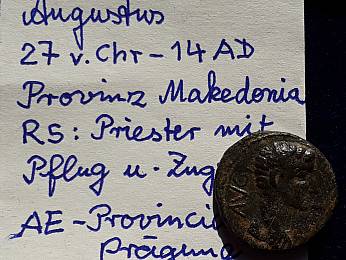 Augustus
27 v. Chr - 14 AD
Provinz Makedonia
RS: Priester mit
Pflug u. Zug
AE - Provinci
Prägun
AVG